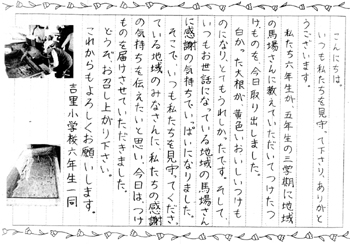 こんにちは。
いつも私たちを見守って下さり、ありがと
うございます。
私たち六年生が、五年生の三学期に地域
の馬場さんに教えていただいてつけたつ
けものを、今日取り出しました。
白かった大根が、黄色いおいしいつけも
のになり、とてもうれしかったです。そして、
いつもお世話になっている地域の馬場さん
に感謝の気持ちでいっぱいになりました。
そこで、いつも私たちを見守ってくださっ
ている地域のみなさんに、私たちの感謝
の気持ちを伝えたいと思い、今日は、つけ
ものを届けさせていただきました。
どうぞ、お召し上がり下さい。
これからもよろしくお願いします。
吉里小学校六年生一同